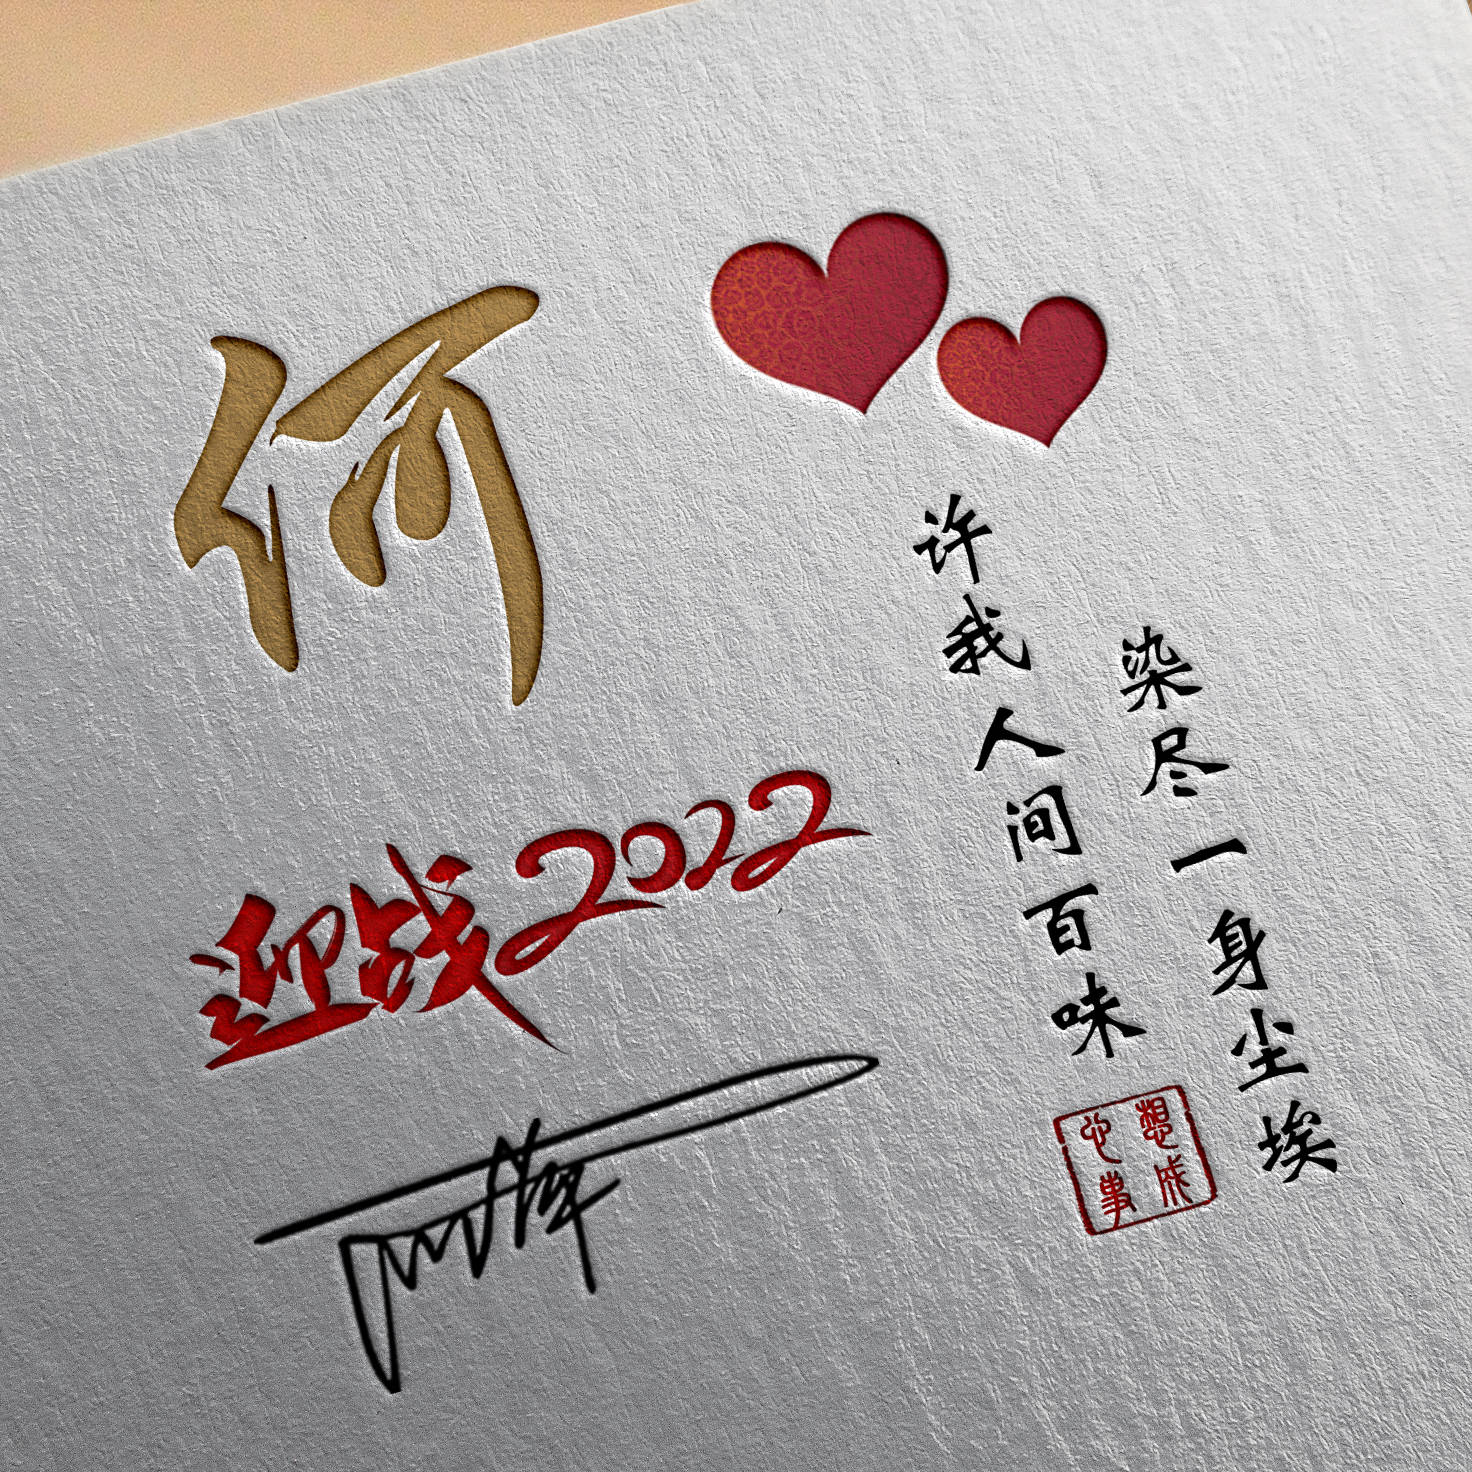 何
迎战2022
许我人间百味
染尽一身尘埃
心想事成